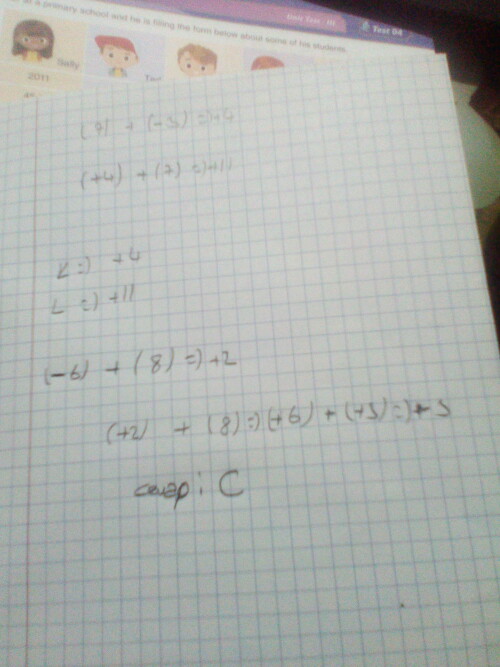 a primary school and he is filling the form below about some of his students.
Test 04
Sally
2011
(9) + (-5) =) +4
(+4) + (7) =) +11
K =) +4
L =) +11
(-6) + (8) =) +2
(+2) + (8) =) (+6) + (+5) =) + 5
cevap: C